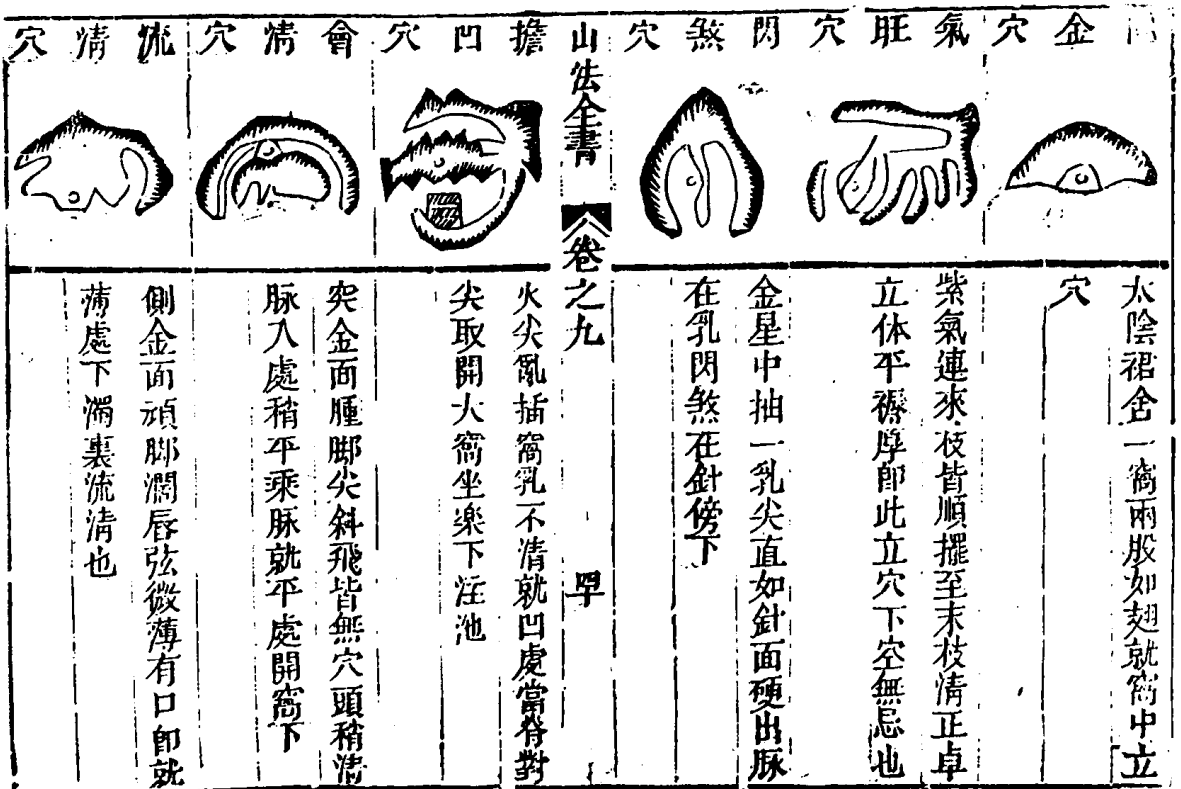 金穴
太陰裙舍一窩兩股如翅就窩中立
穴
氣旺穴
紫氣連來枝皆順擺至末枝淸正卓
立体平褥厚卽此立穴下空無忌也
閃煞穴
金星中抽一乳尖直如針面硬出脉
在乳閃煞在針傍下
山法全書
卷之九
四十
擔凹穴
火尖亂插窩乳不清就凹處當脊對
尖取開大窩坐樂下注池
會清穴
突金面腫脚尖斜飛皆無穴頭稍清
脉入處稍平乘脉就平處開窩下
流清穴
側金面頑脚濶唇弦微薄有口卽就
薄處下濁裏流清也